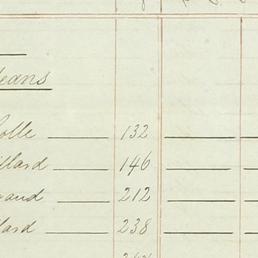 eans
olle 132
llard 146
aud 212
lard 238